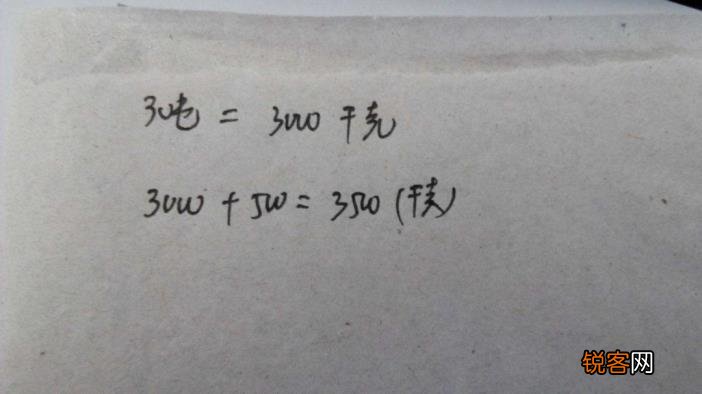 30吨 = 3000 千克
3000 + 500 = 3500 (千克)
锐客网